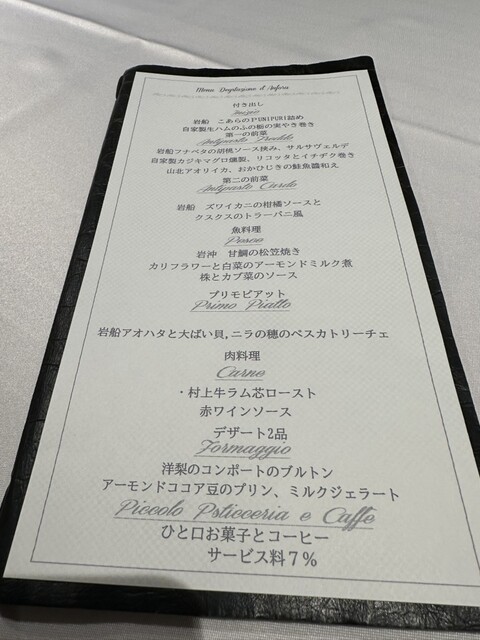 Menu Degstazione d'Anfora
付き出し
Inizio
岩船　こあらのPUNIPUNI詰め
自家製生ハムのふの栃の実やき巻き
第一の前菜
Antipasto Freddo
岩船フナベタの胡桃ソース挟み、サルサヴェルデ
自家製カジキマグロ燻製、リコッタとイチヂク巻き
山北アオリイカ、おかひじきの鮭魚醤和え
第二の前菜
Antipasto Cardo
岩船　ズワイカニの柑橘ソースと
クスクスのトラーパニ風
魚料理
Pesce
岩沖　甘鯛の松笠焼き
カリフラワーと白菜のアーモンドミルク煮
株とカブ菜のソース
プリモピアット
Primo Piatto
岩船アオハタと大ばい貝,ニラの穂のペスカトリーチェ
肉料理
Carne
・村上牛ラム芯ロースト
赤ワインソース
デザート2品
Formaggio
洋梨のコンポートのブルトン
アーモンドココア豆のプリン、ミルクジェラート
Piccolo Psticceria e Caffe
ひと口お菓子とコーヒー
サービス料７％